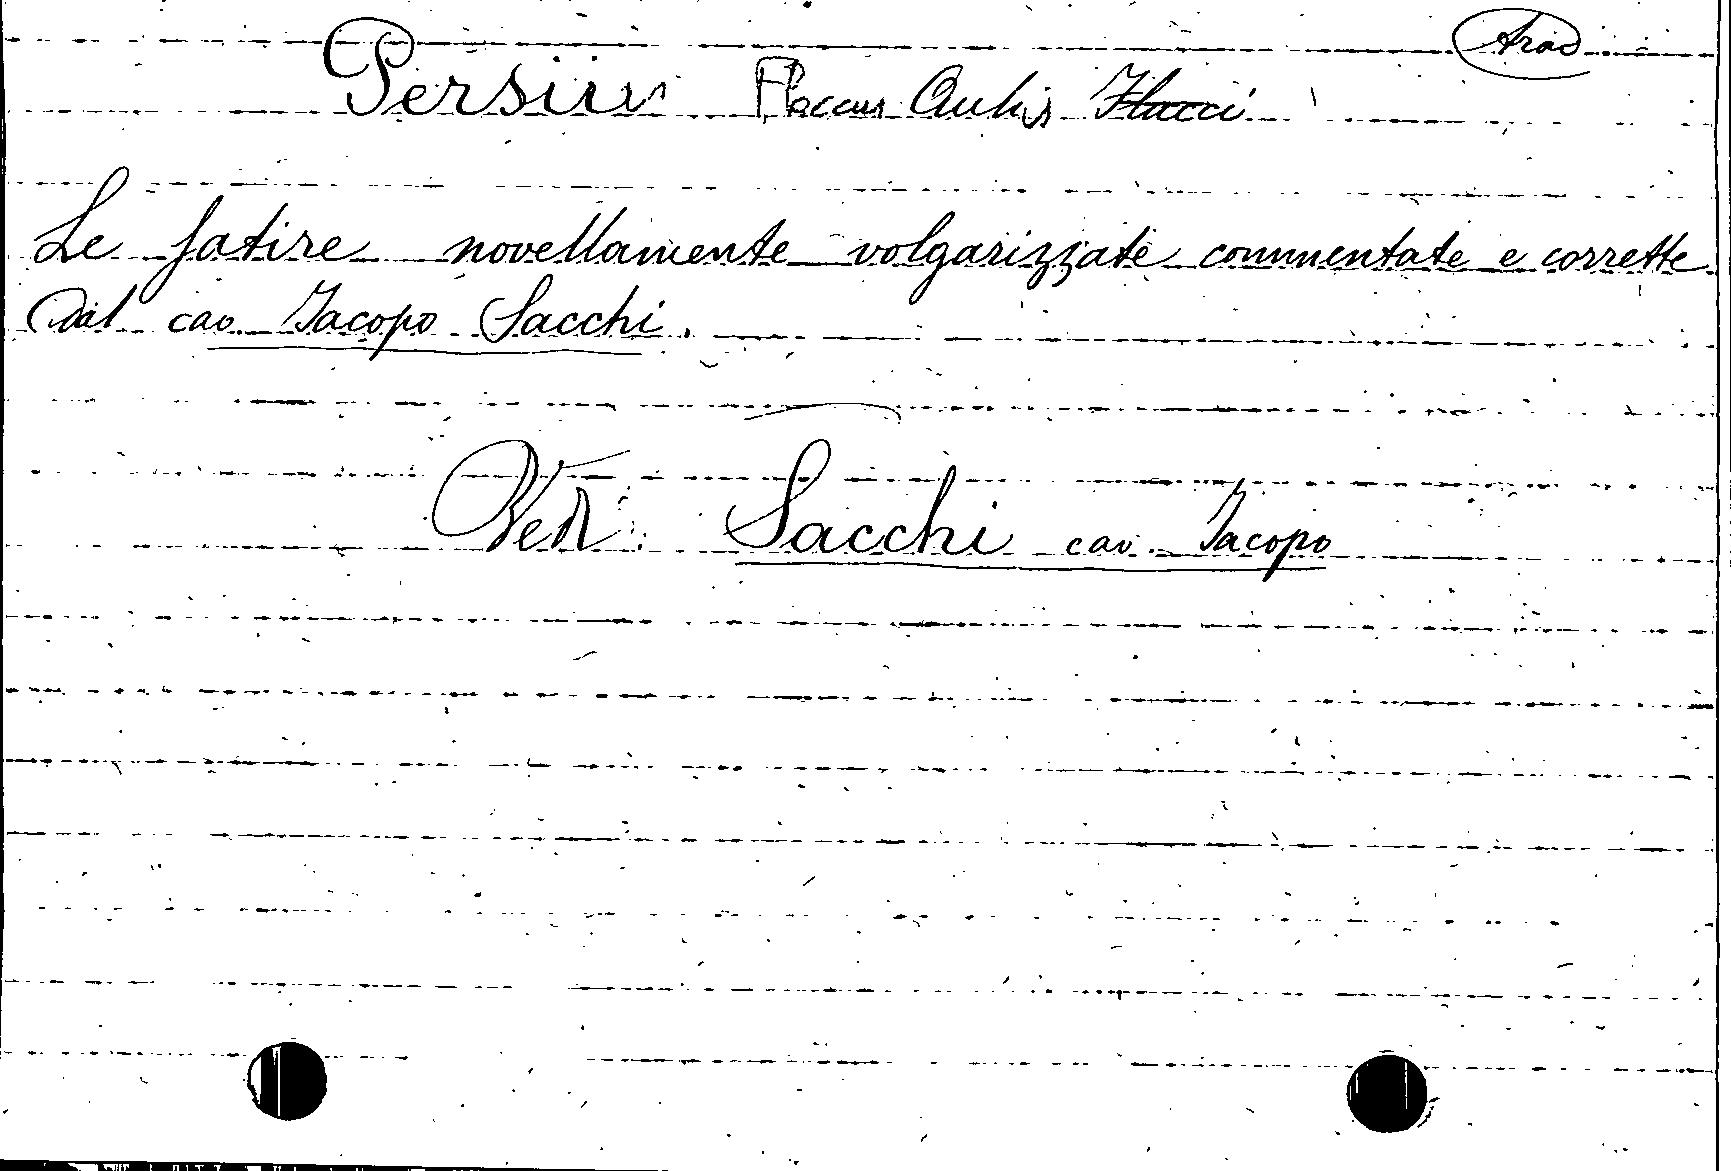 Arad
Persius Flaccus Aulus Flacci
Le satire novellamente volgarizzate commentate e corrette
dal cav. Jacopo Sacchi.
Ved. Sacchi cav. Jacopo